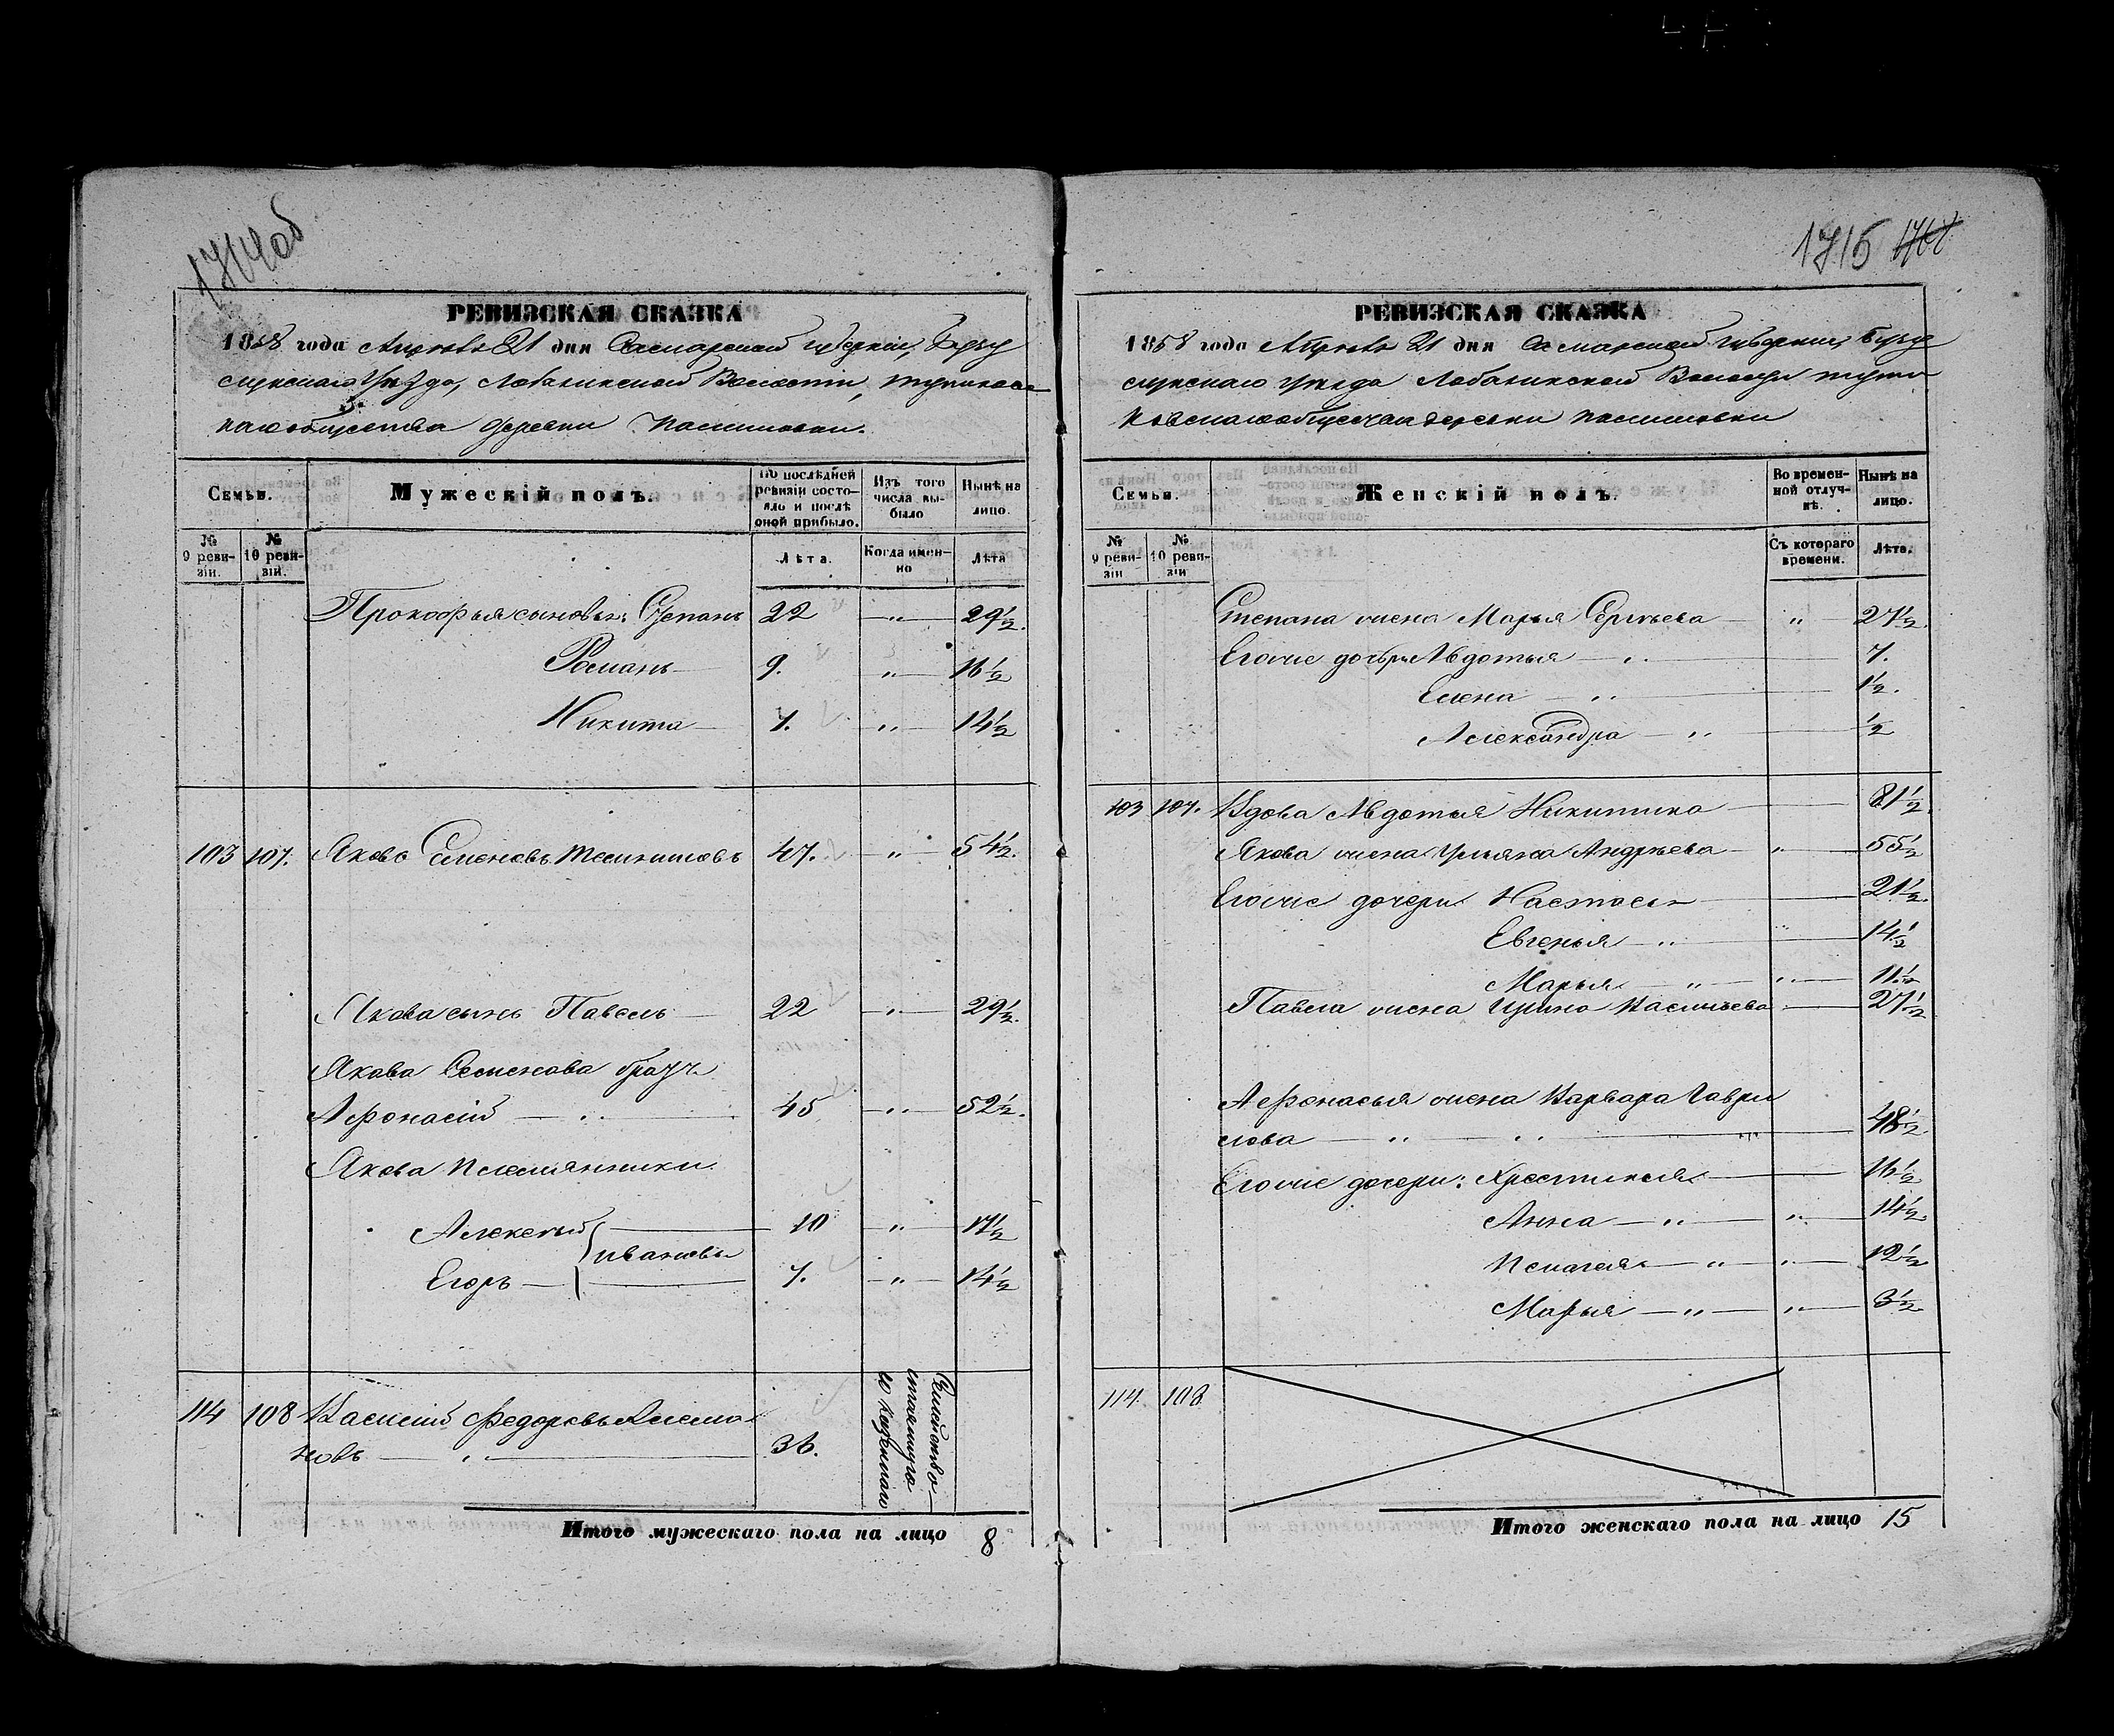 1714об
РЕВИЗСКАЯ СКАЗКА
1858 года Апреля 21 дня Самарской губернии, Бузу
лукскаго Уезда, Лобазинской Волости,
каго общества деревни
Семьи.
Мужескій полъ.
По послѣдней ревизіи состояло и послѣ оной прибыло.
Изъ того числа выбыло
Нынѣ на лицо.
№ 9 ревизіи.
№ 10 ревизіи.
Лѣта.
Когда именно
Лѣта
Прокофья сыновья: Степанъ 22 — „ — 29½.
Романъ — 9. — „ — 16½
Никита — 7. — „ — 14½
103 107. Яковъ Семеновъ 47. — „ — 54½.
Якова сынъ Павелъ — 22 — „ — 29½.
Якова Семенова братъ
Афонасій — „ — 45 — „ — 52½.
Якова племянники.
Алексѣй — 10 — „ — 17½
Ивановы
Егоръ — 7. — „ — 14½
114 108 Василій Федоровъ
новъ — „ — 36.
Семейство
Итого мужескаго пола на лицо 8
1715
РЕВИЗСКАЯ СКАЗКА
1858 года Апреля 21 дня Самарской губернии, Бузу
лукскаго уезда Лобазинской Волости
ковскаго общества деревни
Семьи.
Женскій полъ.
Во временной отлучкѣ.
Нынѣ на лицо.
№ 9 ревизіи
№ 10 ревизіи
Съ котораго времени.
Лѣта.
Степана жена Марья Сергѣева — „ — 27½.
Его же дочери Авдотья — „ — 7.
Елена — „ — 1½.
Александра — „ — ½
103 107. Вдова Авдотья Никитина — 81½.
Якова жена Ульяна Андрѣева — „ — 55½
Его же дочери Настасья — 21½.
Евгенья — „ — 14½
Марья — „ — „ — 11½
Павла жена Ирина Васильева — 27½
Афонасья жена Варвара Гаври
лова — „ — „ — „ — 48½.
Его же дочери: Хрестинья — 16½
Анна — „ — „ — 14½.
Пелагея — „ — „ — 12½
Марья — „ — „ — 3½.
114. 108.
Итого женскаго пола на лицо 15